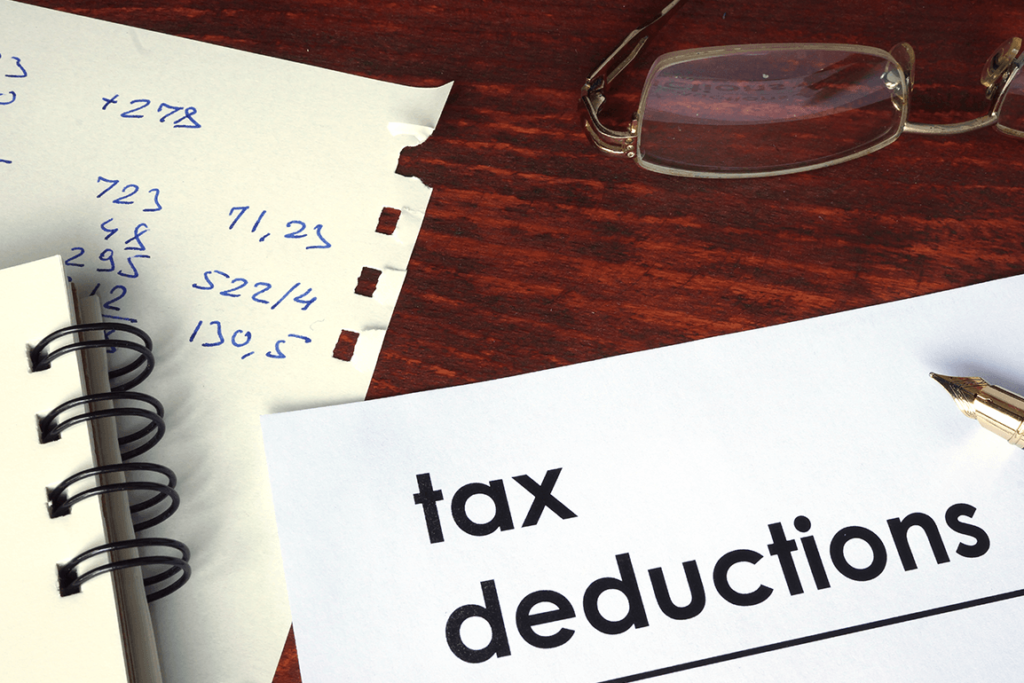 +278
723
48
295
71,23
522/4
130,5
tax
deductions